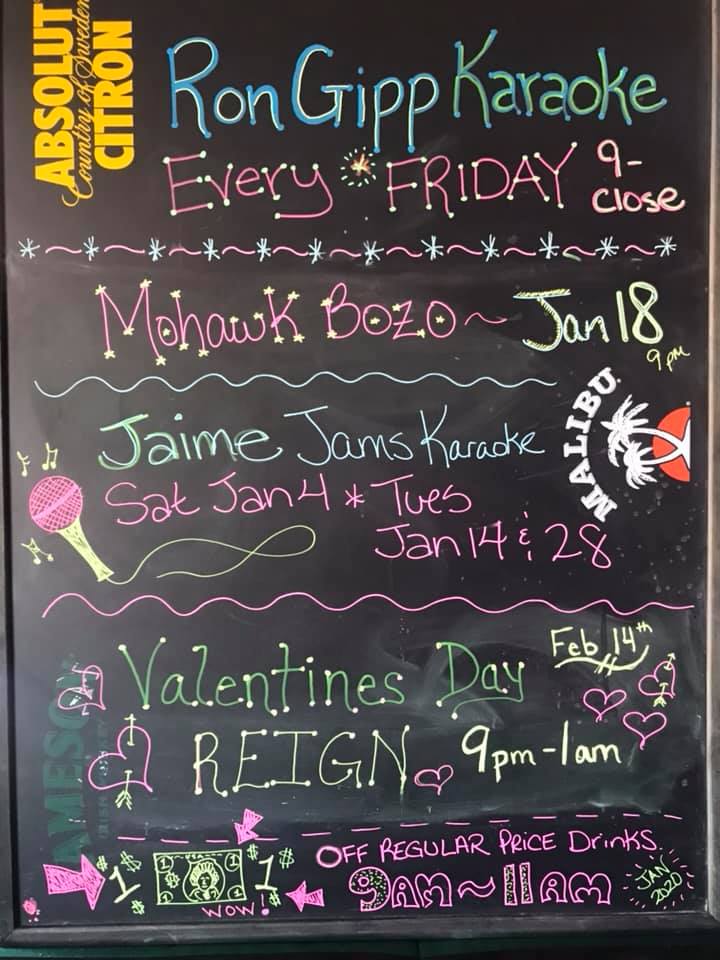 ABSOLUT
Country of Sweden
CITRON
Ron Gipp Karaoke
Every FRIDAY 9-
close
Mohawk Bozo ~ Jan 18
9pm
MALIBU
Jaime Jams Karaoke
Sat Jan 4 * Tues
Jan 14 & 28
Valentines Day Feb 14th
REIGN 9pm-1am
JAMESON
IRISH WHISKEY
$ 1 $ 1 1 1 1 $ 1 $
WOW!
OFF REGULAR PRICE Drinks
9AM~11AM
JAN
2020